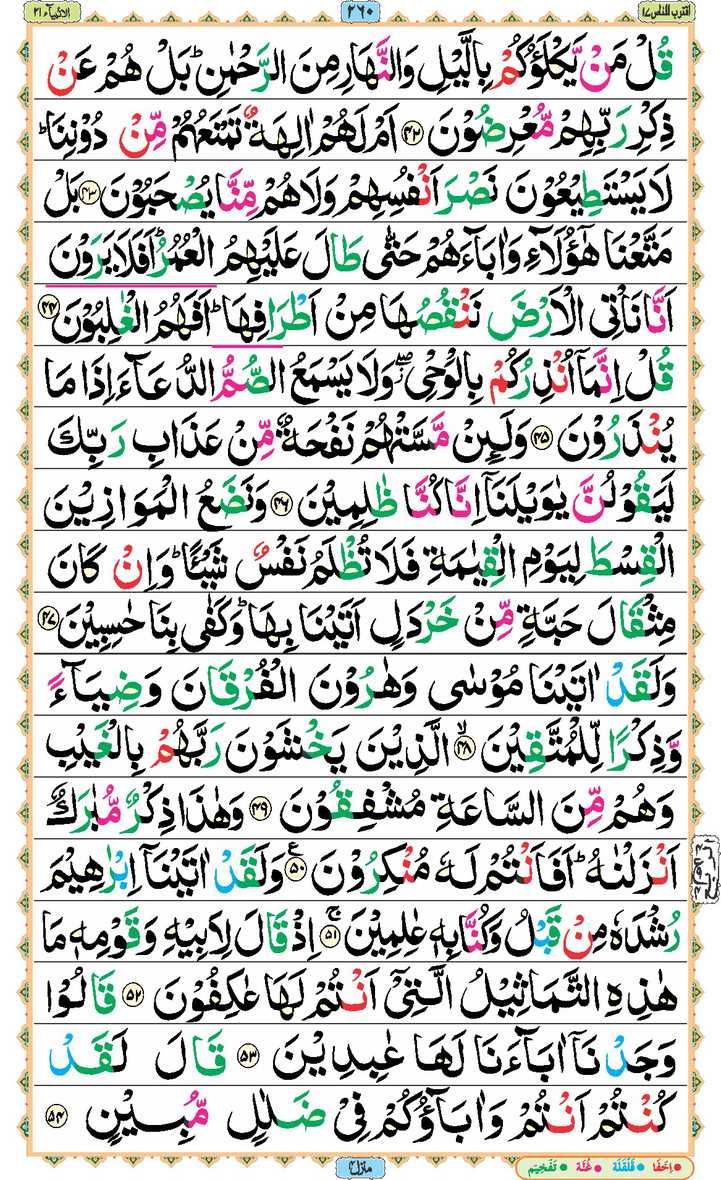 اقترب للناس ۱۷
۲۶۰
الانبیآء ۲۱
قُلْ مَنْ یَّكْلَؤُكُمْ بِالَّیْلِ وَالنَّهَارِ مِنَ الرَّحْمٰنِ ؕ بَلْ هُمْ عَنْ
ذِكْرِ رَبِّهِمْ مُّعْرِضُوْنَ ﴿۴۲﴾ اَمْ لَهُمْ اٰلِهَةٌ تَمْنَعُهُمْ مِّنْ دُوْنِنَا ؕ
لَا یَسْتَطِیْعُوْنَ نَصْرَ اَنْفُسِهِمْ وَلَا هُمْ مِّنَّا یُصْحَبُوْنَ ﴿۴۳﴾ بَلْ
مَتَّعْنَا هٰۤؤُلَآءِ وَاٰبَآءَهُمْ حَتّٰی طَالَ عَلَیْهِمُ الْعُمُرُ ؕ اَفَلَا یَرَوْنَ
اَنَّا نَاْتِی الْاَرْضَ نَنْقُصُهَا مِنْ اَطْرَافِهَا ؕ اَفَهُمُ الْغٰلِبُوْنَ ﴿۴۴﴾
قُلْ اِنَّمَاۤ اُنْذِرُكُمْ بِالْوَحْیِ ۖؗ وَلَا یَسْمَعُ الصُّمُّ الدُّعَآءَ اِذَا مَا
یُنْذَرُوْنَ ﴿۴۵﴾ وَلَىِٕنْ مَّسَّتْهُمْ نَفْحَةٌ مِّنْ عَذَابِ رَبِّكَ
لَیَقُوْلُنَّ یٰوَیْلَنَاۤ اِنَّا كُنَّا ظٰلِمِیْنَ ﴿۴۶﴾ وَنَضَعُ الْمَوَازِیْنَ
الْقِسْطَ لِیَوْمِ الْقِیٰمَةِ فَلَا تُظْلَمُ نَفْسٌ شَیْـًٔا ؕ وَاِنْ كَانَ
مِثْقَالَ حَبَّةٍ مِّنْ خَرْدَلٍ اَتَیْنَا بِهَا ؕ وَكَفٰی بِنَا حٰسِبِیْنَ ﴿۴۷﴾
وَلَقَدْ اٰتَیْنَا مُوْسٰی وَهٰرُوْنَ الْفُرْقَانَ وَضِیَآءً
وَّذِكْرًا لِّلْمُتَّقِیْنَ ۙ﴿۴۸﴾ الَّذِیْنَ یَخْشَوْنَ رَبَّهُمْ بِالْغَیْبِ
وَهُمْ مِّنَ السَّاعَةِ مُشْفِقُوْنَ ﴿۴۹﴾ وَهٰذَا ذِكْرٌ مُّبٰرَكٌ
اَنْزَلْنٰهُ ؕ اَفَاَنْتُمْ لَهٗ مُنْكِرُوْنَ ﴿۵۰﴾ ع وَلَقَدْ اٰتَیْنَاۤ اِبْرٰهِیْمَ
رُشْدَهٗ مِنْ قَبْلُ وَكُنَّا بِهٖ عٰلِمِیْنَ ۚ﴿۵۱﴾ اِذْ قَالَ لِاَبِیْهِ وَقَوْمِهٖ مَا
هٰذِهِ التَّمَاثِیْلُ الَّتِیْۤ اَنْتُمْ لَهَا عٰكِفُوْنَ ﴿۵۲﴾ قَالُوْا
وَجَدْنَاۤ اٰبَآءَنَا لَهَا عٰبِدِیْنَ ﴿۵۳﴾ قَالَ لَقَدْ
كُنْتُمْ اَنْتُمْ وَاٰبَآؤُكُمْ فِیْ ضَلٰلٍ مُّبِیْنٍ ﴿۵۴﴾
منزل ۴
اِخفَا قَلقَلَة غُنَّة تَفخِیم